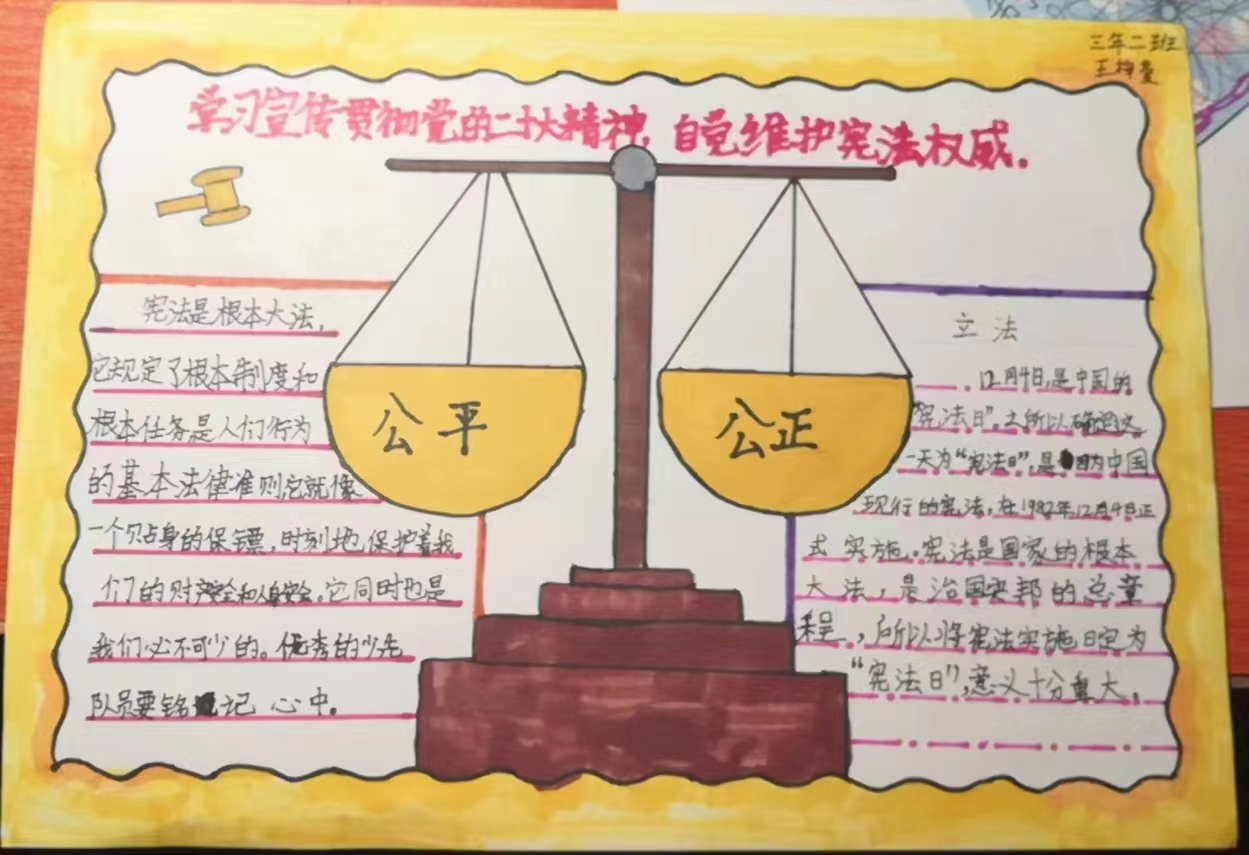 三年二班
王
学习宣传贯彻党的二十大精神，自觉维护宪法权威。
宪法是根本大法，
它规定了根本制度和
根本任务是人们行为
的基本法律准则它就像
一个贴身的保镖，时刻地保护着我
们的财产安全和人身安全。它同时也是
我们必不可少的。优秀的少先
队员要铭记心中。
公平
公正
立法
12月4日，是中国的
“宪法日”。之所以确定这
一天为“宪法日”，是因为中国
现行的宪法，在1982年12月4日正
式实施。宪法是国家的根本
大法，是治国安邦的总章
程，所以将宪法实施日定为
“宪法日”，意义十分重大。